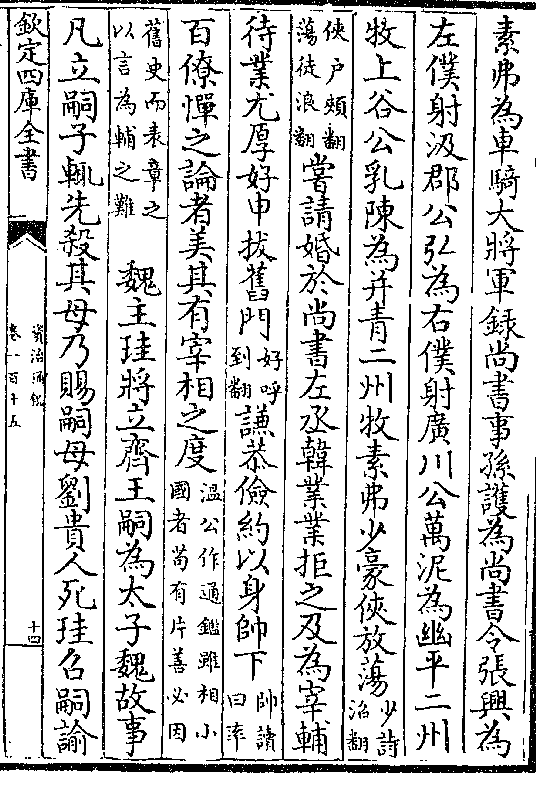 素弗為車騎大將軍録尚書事孫護為尚書令張興為
左僕射汲郡公弘為右僕射廣川公萬泥為幽平二州
牧上谷公乳陳為并青二州牧素弗少豪俠放蕩少詩照翻
俠户頰翻蕩徒浪翻嘗請婚於尚書左丞韓業業拒之及為宰輔
待業尤厚好申拔舊門好呼到翻謙恭儉約以身帥下帥讀曰率
百僚憚之論者美其有宰相之度温公作通鑑雖相小國者苟有片善必因
舊史而表章之以言為輔之難 魏主珪將立齊王嗣為太子魏故事
凡立嗣子輒先殺其母乃賜嗣母劉貴人死珪召嗣諭
欽定四庫全書
資治通鑑
卷一百十五
十四